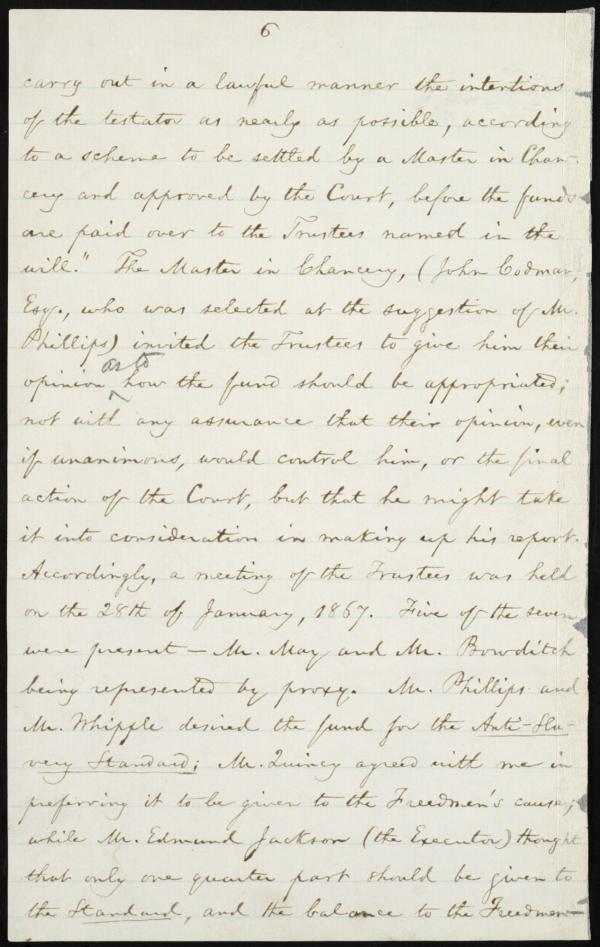 6
carry out in a lawful manner the intentions
of the testator as nearly as possible, according
to a scheme to be settled by a Master in Chan-
cery and approved by the Court, before the funds
are paid over to the Trustees named in the
will." The Master in Chancery, (John Codman,
Esq., who was selected at the suggestion of Mr.
Phillips) invited the Trustees to give him their
as to
opinion ^ how the fund should be appropriated;
not with any assurance that their opinion, even
if unanimous, would control him, or the final
action of the Court, but that he might take
it into consideration in making up his report.
Accordingly, a meeting of the Trustees was held
on the 28th of January, 1867. Five of the seven
were present — Mr. May and Mr. Bowditch
being represented by proxy. Mr. Phillips and
Mr. Whipple desired the fund for the Anti-Sla-
very Standard; Mr. Quincy agreed with me in
preferring it to be given to the Freedmen's cause;
while Mr. Edmund Jackson (the Executor) thought
that only one quarter part should be given to
the Standard, and the balance to the Freedmen—